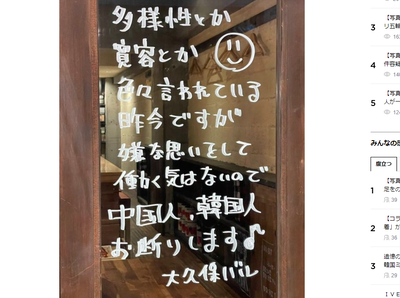 多様性とか
寛容とか
色々言われている
昨今ですが
嫌な思いをして
働く気はないので
中国人、韓国人
お断りします♪
大久保バル
【写真
3
リ五輪
【写真
4
【写真
5
人が一
みんなの
役立つ
【写真
1
足をの
39
【コラ
2
着」が
36
道徳の
3
韓国ミ
39
ＩＶＥ